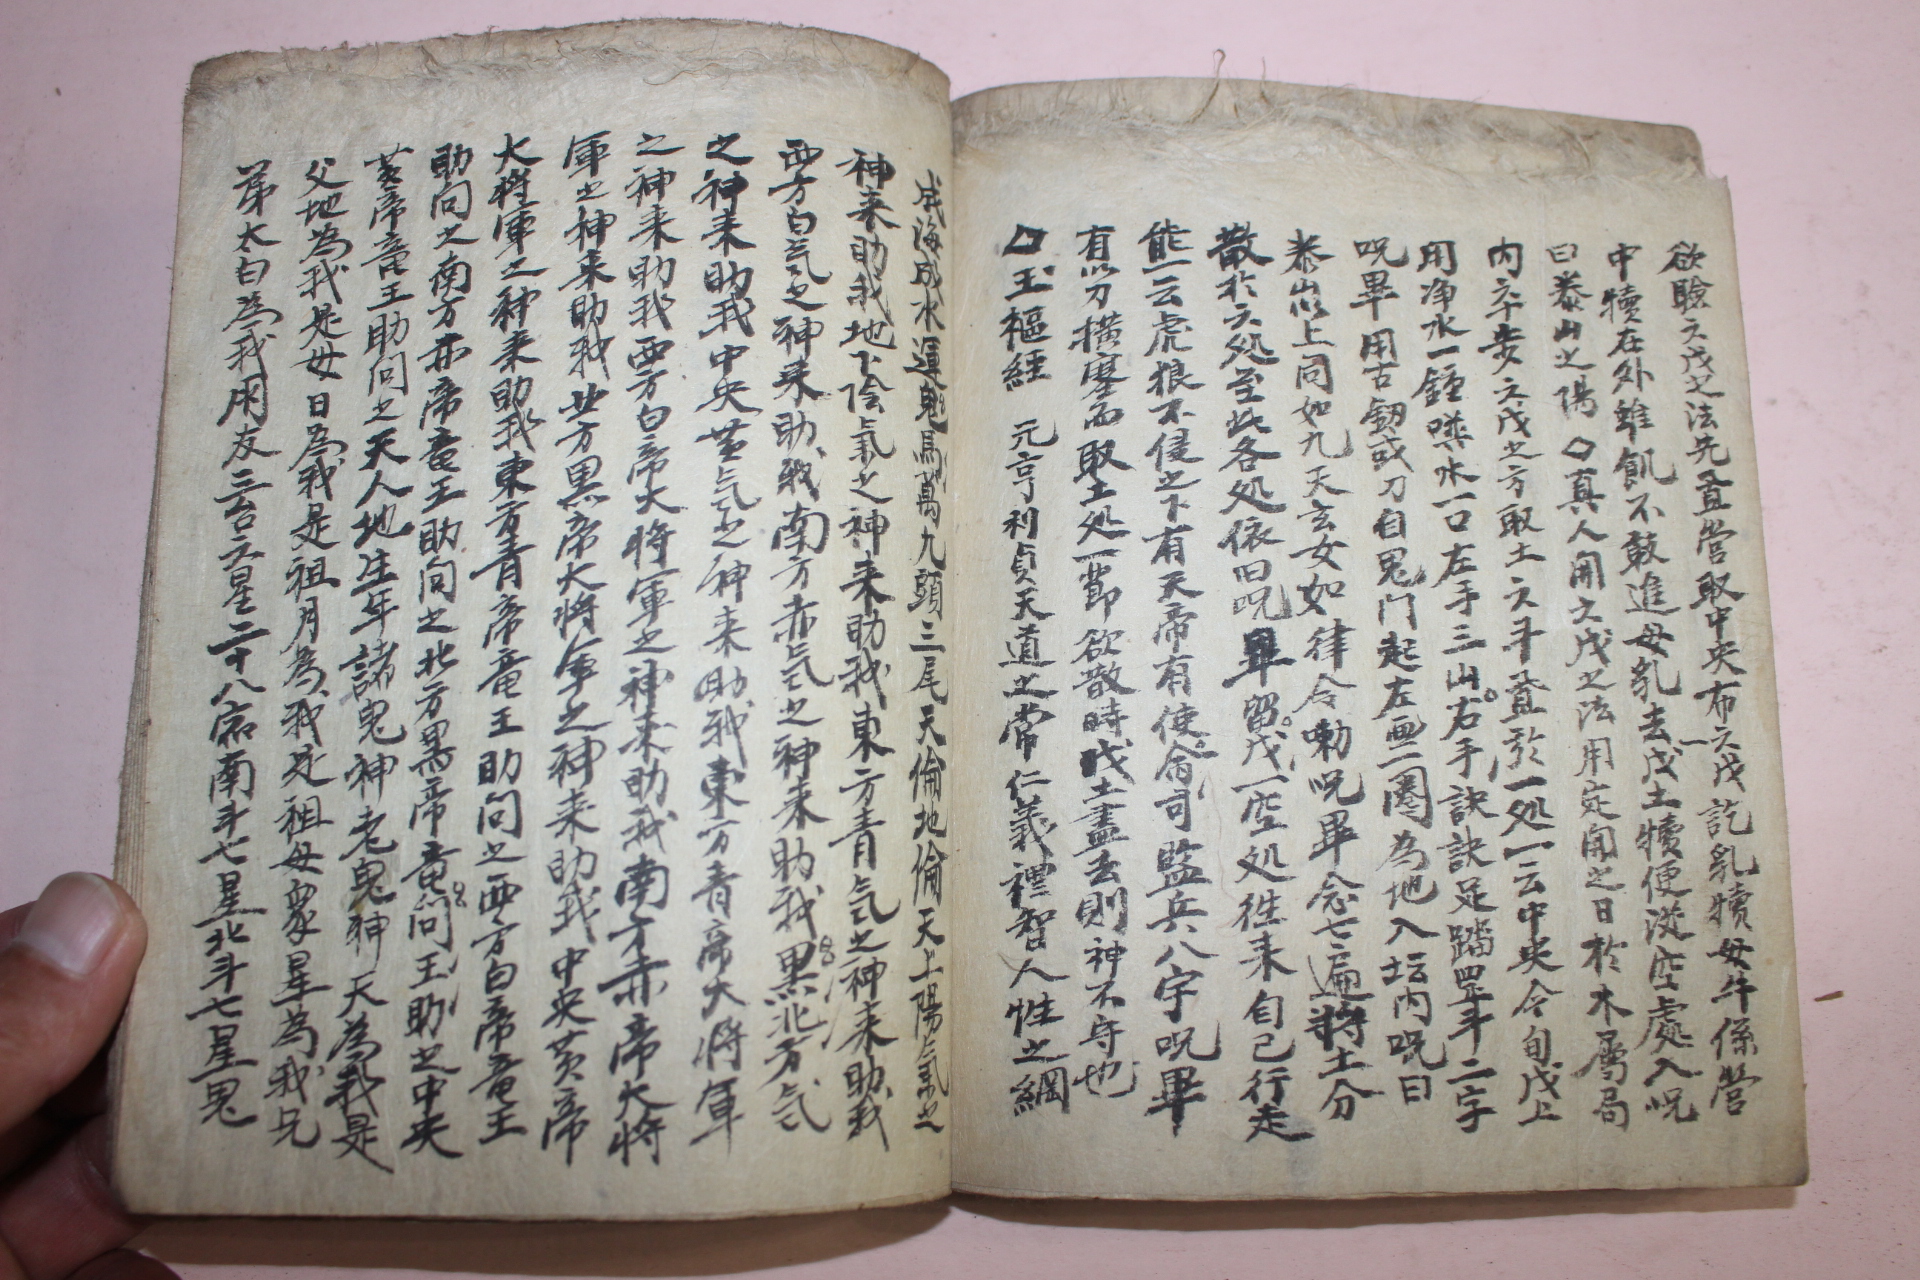 欲驗六戊之法先置營取中央布六戊訖乳犢母牛係營
中犢在外雖飢不敢進母乳去戊土犢便從空處入呪
曰泰山之陽 真人開六戊之法用定開之日於木屬局
內六步六戊之方取土六斗置於一処一云中央令自戊上
用净水一鍾噀水一口左手三山右手訣訣足踏罡斗二字
呪畢用古劒或刀自鬼門起左畫一圈為地入坛内呪曰
泰山以上同如九天玄女如律令嘞呪畢念七遍將土分
散於六処至此各処依旧呪畢留戊一空処徃来自己行走
能一云虎狼不侵之下有天帝有使命司監兵八字呪畢
有以刀橫塞而取土処一節欲散時戊土盡去則神不守也
玉樞經 元亨利貞天道之常仁義禮智人性之綱
成海成水運鬼馬萬九頭三尾天倫地倫天上陽氣之
神来助我地下陰氣之神来助我東方青気之神来助我
西方白気之神来助我南方赤気之神来助我黒北方気
之神来助我中央黄気之神来助我東方青帝大将軍
之神来助我西方白帝大将軍之神来助我南方赤帝大将
軍之神来助我北方黒帝大将軍之神来助我中央黄帝
大将軍之神来助我東方青帝竜王助问之西方白帝竜王
助问之南方赤帝竜王助问之北方黒帝竜问王助之中央
黄帝竜王助问之天人地生年諸鬼神老鬼神天為我是
父地為我是母日為我是祖月為我是祖母衆星為我兄
弟太白為我朋友三台六星二十八宿南斗七星北斗七星鬼